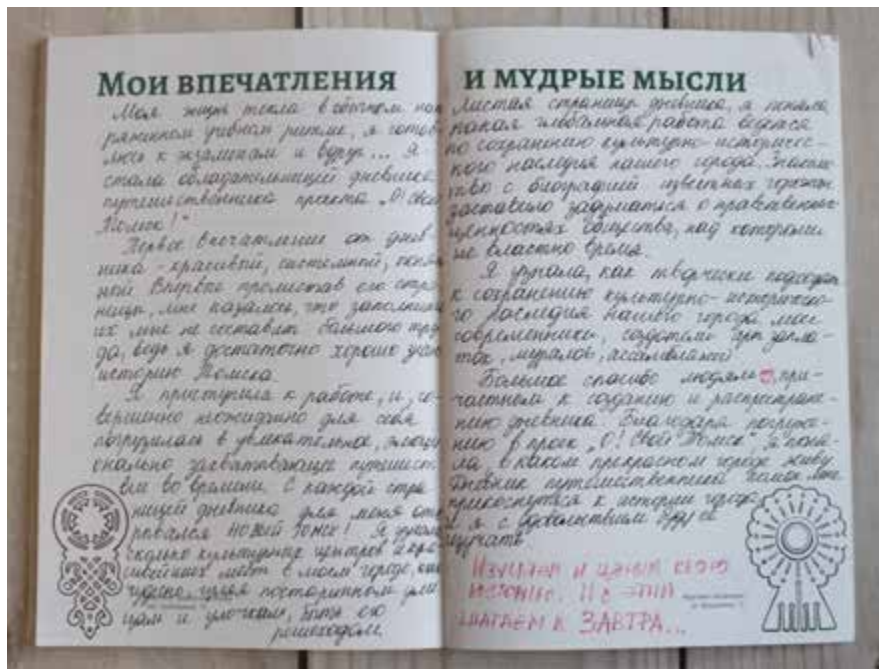 Мои впечатления
Моя жизнь текла в обычном нап
ряженном учебном ритме, я готов
люсь к экзаменам и вдруг... Я
стала обладательницей дневника
путешественника проекта „О! Свой
Томск!"
Первое впечатление от днев
ника - красивый, системный, понят
ной Впервые пролистав его стра
ницы, мне казалось, что заполнить
их мне не составит большого тру
да, ведь я достаточно хорошо знаю
историю Томска.
Я приступила к работе, и, со-
вершенно неожиданно для себя
погрузилась в увлекательное, эмоци
онально захватывающее путешест
вие во времени. С каждой стра
ницей дневника для меня отк
рывался НОВЫЙ ТОМСК! Я узнала
сколько культурных центров и кра
сивейших мест в моем городе, как
чудесно, гуляя по старинным ули
цам и улочкам, быть его
пешеходом.
и мудрые мысли
Листая страницы дневника, я поняла
какая глобальная работа ведется
по сохранению культурно-историчес-
кого наследия нашего города. Знаком
ство с биографией известных горожан
заставило задуматься о нравственных
ценностях общества, над которыми
не властно время.
Я узнала, как творчески подходят
к сохранению культурно-историческо-
го наследия нашего города мои
современники, создатели арт запла-
ток, муралов, ассамбляжей
Большое спасибо людям, при-
частным к созданию и распростране-
нию дневника. Благодаря погруже-
нию в проек „О! Свой Томск" я поня-
ла, в каком прекрасном городе живу.
Дневник путешественника помог мне
прикоснуться к истории города
и я с удовольствием буду её
изучать.
Изучаем и ценим свою
историю. И с этим
шагаем к ЗАВТРА...